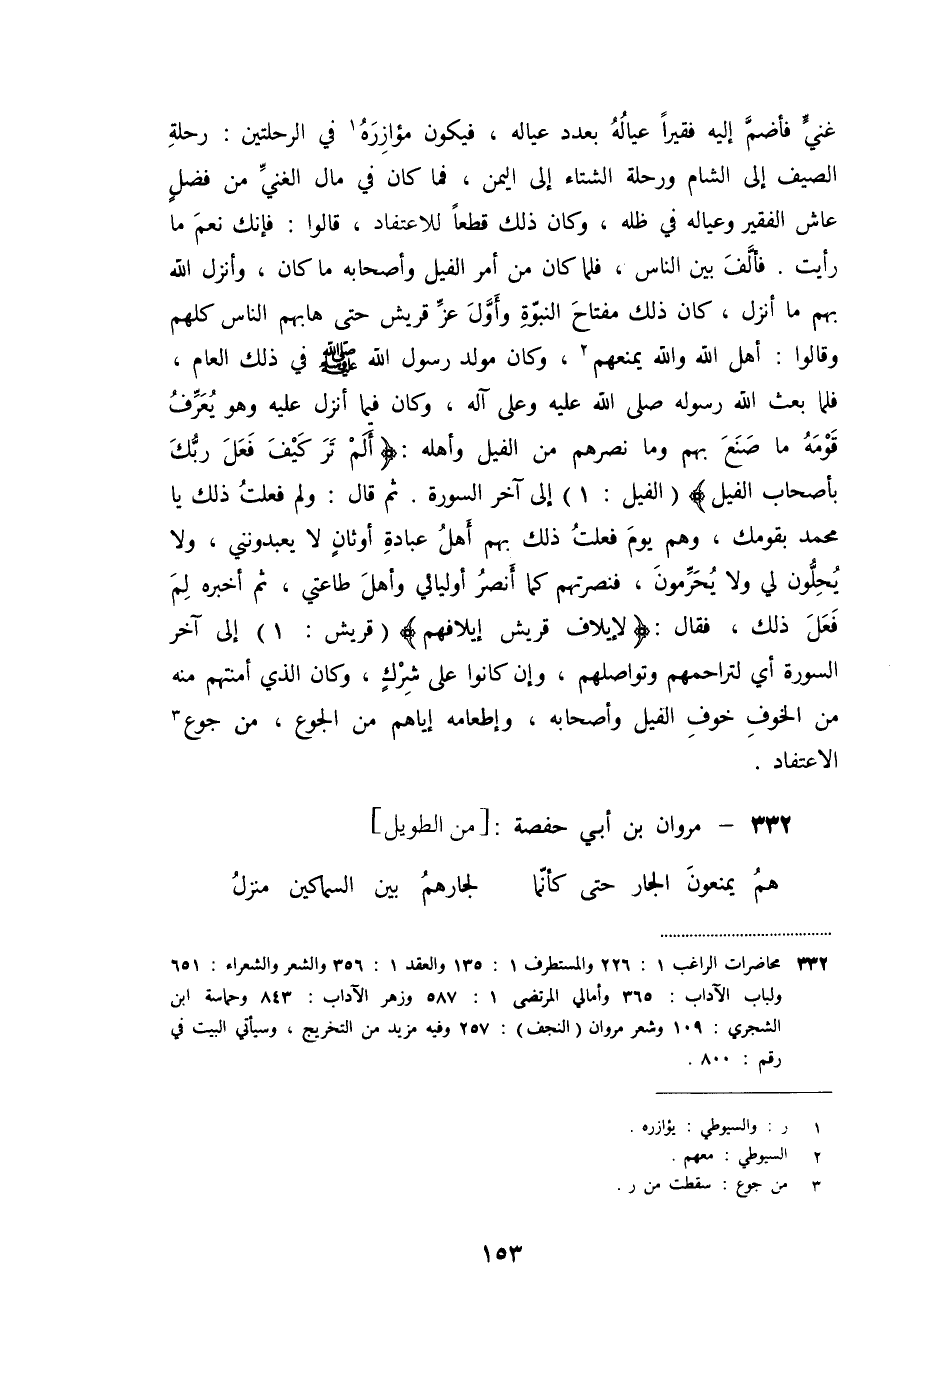 غنيٍّ فأضمَّ إليه فقيراً عيالُهُ بعدد عياله ، فيكون مؤازِرَهُ١ في الرحلتين : رحلةِ
الصيف إلى الشام ورحلة الشتاء إلى اليمن ، فما كان في مال الغنيِّ من فضلٍ
عاش الفقير وعياله في ظله ، وكان ذلك قطعاً للاعتفاد ، قالوا : فإنك نعمَ ما
رأيت . فألَّفَ بين الناس ، فلما كان من أمر الفيل وأصحابه ما كان ، وأنزل الله
بهم ما أنزل ، كان ذلك مفتاحَ النبوّةِ وأوَّلَ عزِّ قريش حتى هابهم الناس كلهم
وقالوا : أهل الله والله يمنعهم٢ ، وكان مولد رسول الله ﷺ في ذلك العام ،
فلما بعث الله رسوله صلى الله عليه وعلى آله ، وكان فيما أنزل عليه وهو يُعَرِّفُ
قَوْمَهُ ما صَنَعَ بهم وما نصرهم من الفيل وأهله : ﴿ أَلَمْ تَرَ كَيْفَ فَعَلَ ربُّكَ
بأصحاب الفيل ﴾ ( الفيل : ١ ) إلى آخر السورة . ثم قال : ولم فعلتُ ذلك يا
محمد بقومك ، وهم يومَ فعلتُ ذلك بهم أَهلُ عبادةِ أوثانٍ لا يعبدونني ، ولا
يُحِلُّون لي ولا يُحَرِّمونَ ، فنصرتهم كما أَنصرُ أوليائي وأهلَ طاعتي ، ثم أخبره لِمَ
فَعَلَ ذلك ، فقال : ﴿ لإيلاف قريش إيلافهم ﴾ ( قريش : ١ ) إلى آخر
السورة أي لتراحمهم وتواصلهم ، وإن كانوا على شِرْكٍ ، وكان الذي أمنتهم منه
من الخوفِ خوفِ الفيل وأصحابه ، وإطعامه إياهم من الجوع ، من جوع٣
الاعتفاد .
٣٣٢ – مروان بن أبي حفصة : [ من الطويل ]
همُ يمنعونَ الجار حتى كأنّما لجارهمُ بين السماكين منزلُ
٣٣٢ محاضرات الراغب ١ : ٢٢٦ والمستطرف ١ : ١٣٥ والعقد ١ : ٣٥٦ والشعر والشعراء : ٦٥١
ولباب الآداب : ٣٦٥ وأمالي المرتضى ١ : ٥٨٧ وزهر الآداب : ٨٤٣ وحماسة ابن
الشجري : ١٠٩ وشعر مروان ( النجف ) : ٢٥٧ وفيه مزيد من التخريج ، وسيأتي البيت في
رقم : ٨٠٠ .
١ ر : والسيوطي : يؤازره .
٢ السيوطي : معهم .
٣ من جوع : سقطت من ر .
١٥٣